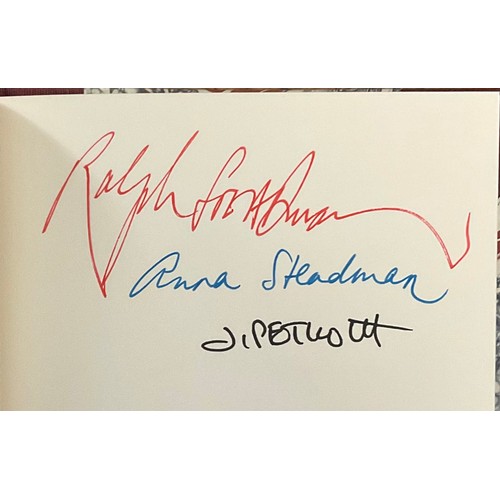 Ralph Steadman
Anna Steadman
J. PETRO III